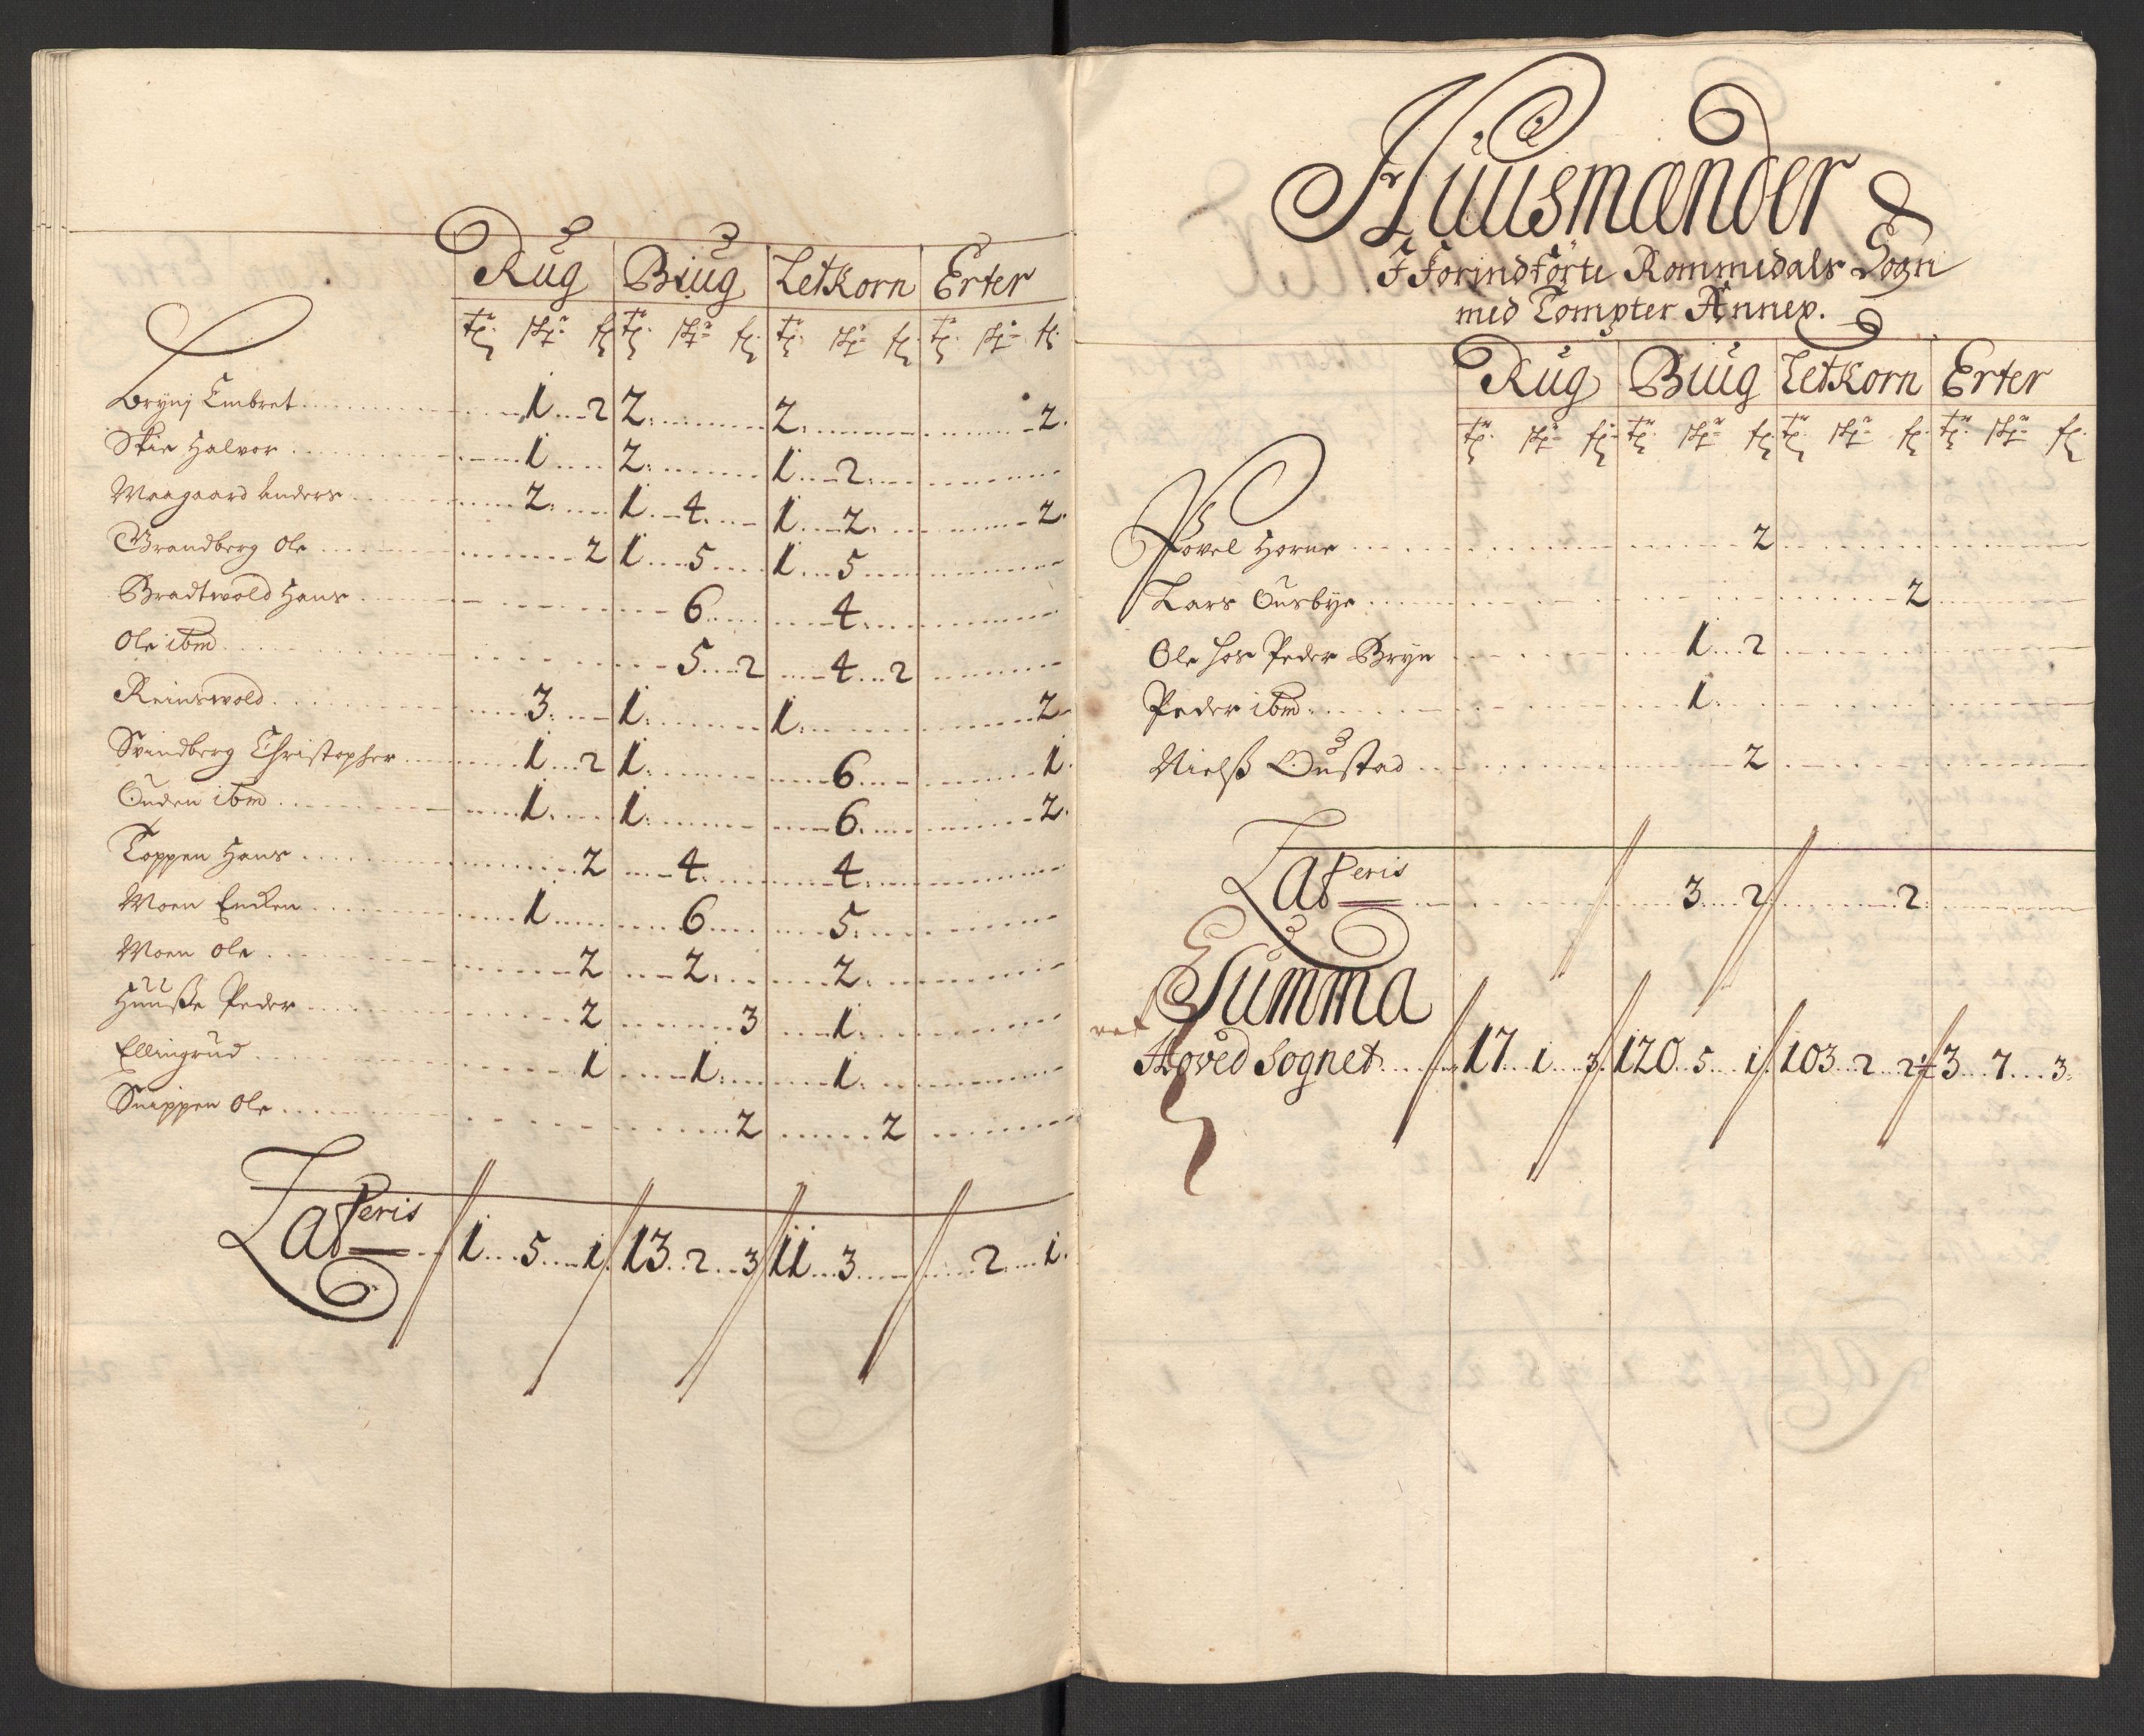 Rug Biug LetKorn Erter
tr. skp. fc. tr. skp. fc. tr. skp. fc. tr. skp. fc.
Brynj Embret 1 2 2 2 2
Skie Halvor 1 2 1 2
Maagaard Anders 2 1 4 1 2 2
Brandberg Ole 2 1 5 1 5
Bradtvold Hans 6 4
Ole ibm 5 2 4 2
Reinsvold 3 1 1 2
Svindberg Christopher 1 2 1 6 1
Ouden ibm 1 1 6 2
Toppen Hans 2 4 4
Moen Encken 1 6 5
Moen Ole 2 2 2
Huusße Peder 2 3 1
Ellingrud 1 1 1
Snippen Ole 2 2
Lateris 1 5 1 13 2 3 11 3 2 1
Huusmænder
I Forindförte Rommedals Sogn
med Tompter Annex.
Rug Biug LetKorn Erter
tr. skp. fc. tr. skp. fc. tr. skp. fc. tr. skp. fc.
Povel Horne 2
Lars Ousbye 2
Ole hos Peder Bryn 1 2
Peder ibm 1
Nielß Oustad 2
Lateris 3 2 2
Summa
Hoved Sognet 17 1 3 120 5 1 103 2 2 3 7 3